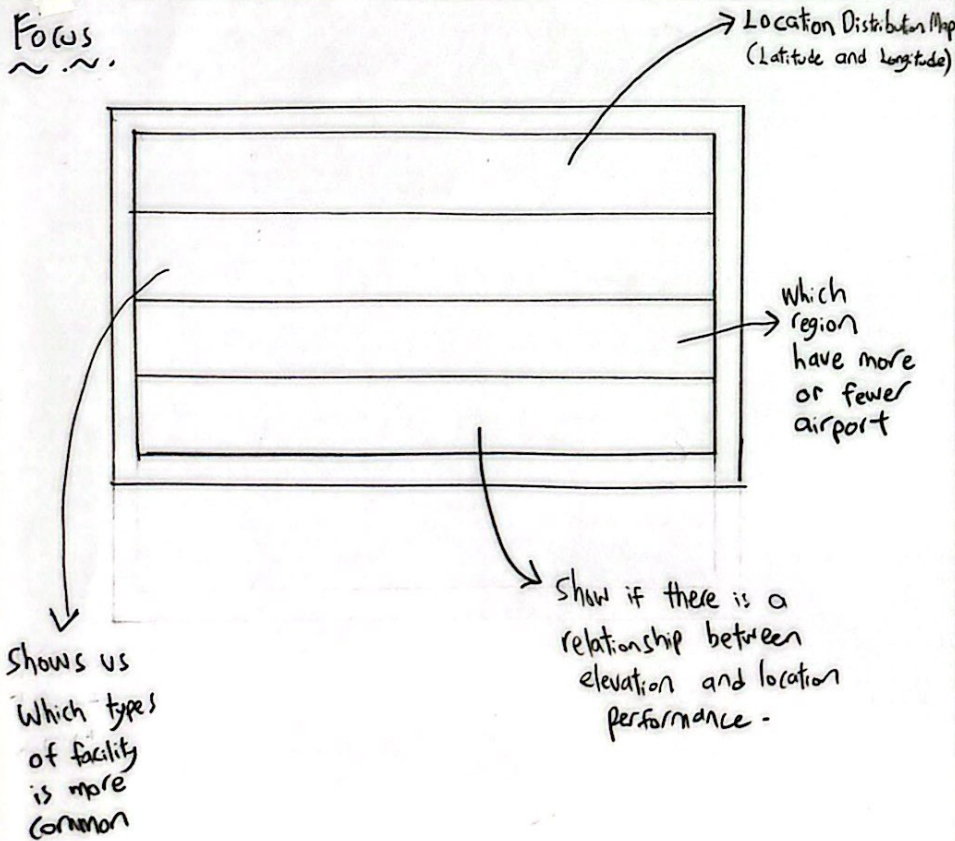 Focus
Location Distribution Map
(Latitude and Longitude)
Which
region
have more
or fewer
airport
Show if there is a
relationship between
elevation and location
performance.
Shows us
Which types
of facility
is more
common